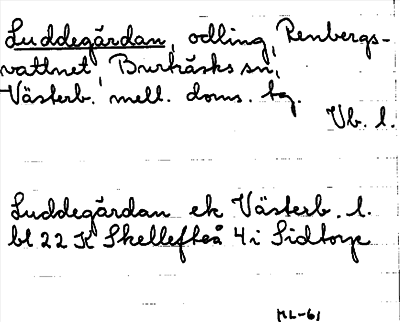 Luddegårdan, odling, Renbergs-
vattnet, Burträsks sn,
Västerb. mell. doms. tg.
Vb. l.
Luddegårdan ek Västerb. l.
bl 22 K Skellefteå 4 i Sidtorp
ML-61